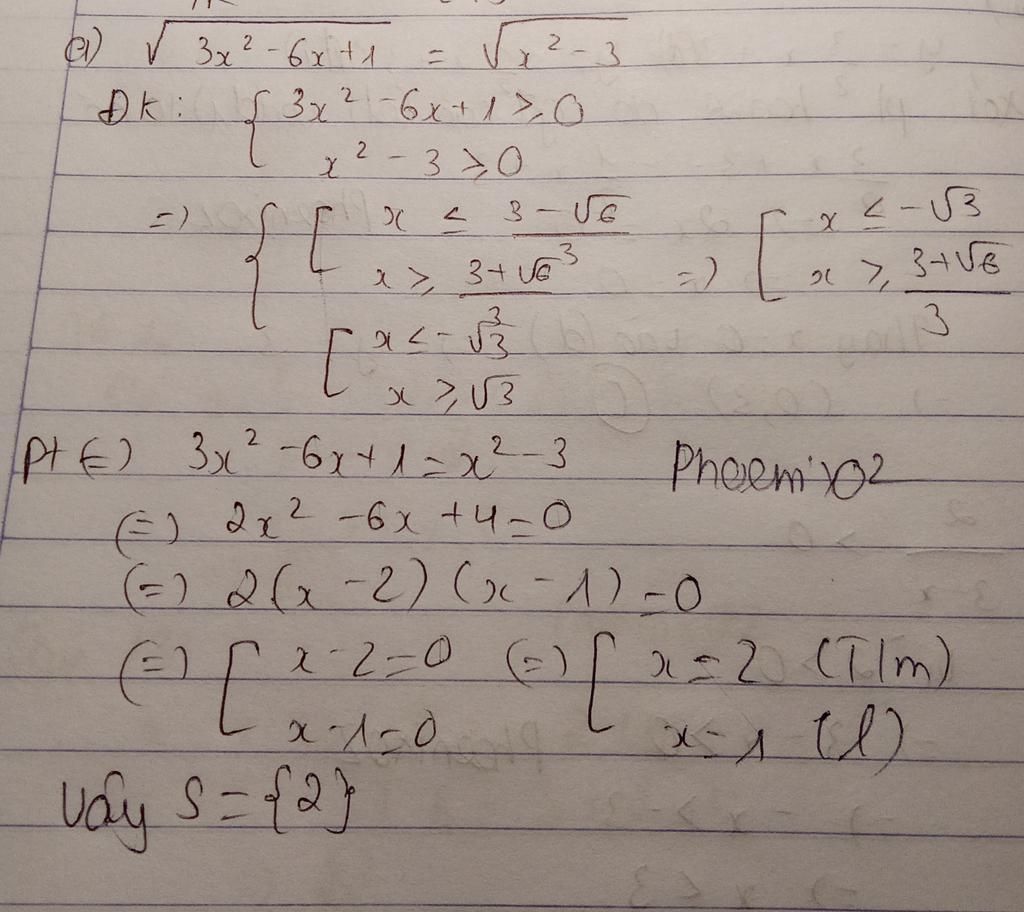 a) √(3x² - 6x + 1) = √(x² - 3)
ĐK: { 3x² - 6x + 1 ≥ 0
x² - 3 ≥ 0
=) { [ x ≤ (3 - √6)/3 =) [ x ≤ -√3
x ≥ (3 + √6)/3 x ≥ (3 + √6)/3
[ x ≤ -√3
x ≥ √3
Pt (=) 3x² - 6x + 1 = x² - 3 Phoem1802
(=) 2x² - 6x + 4 = 0
(=) 2(x - 2)(x - 1) = 0
(=) [ x - 2 = 0 (=) [ x = 2 (T/m)
x - 1 = 0 x = 1 (l)
Vậy S = {2}